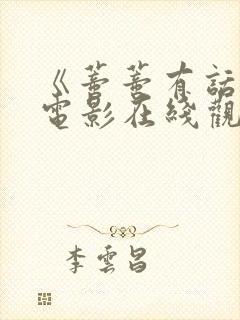 《蕾蕾有話
電影在綫觀
李雲昌